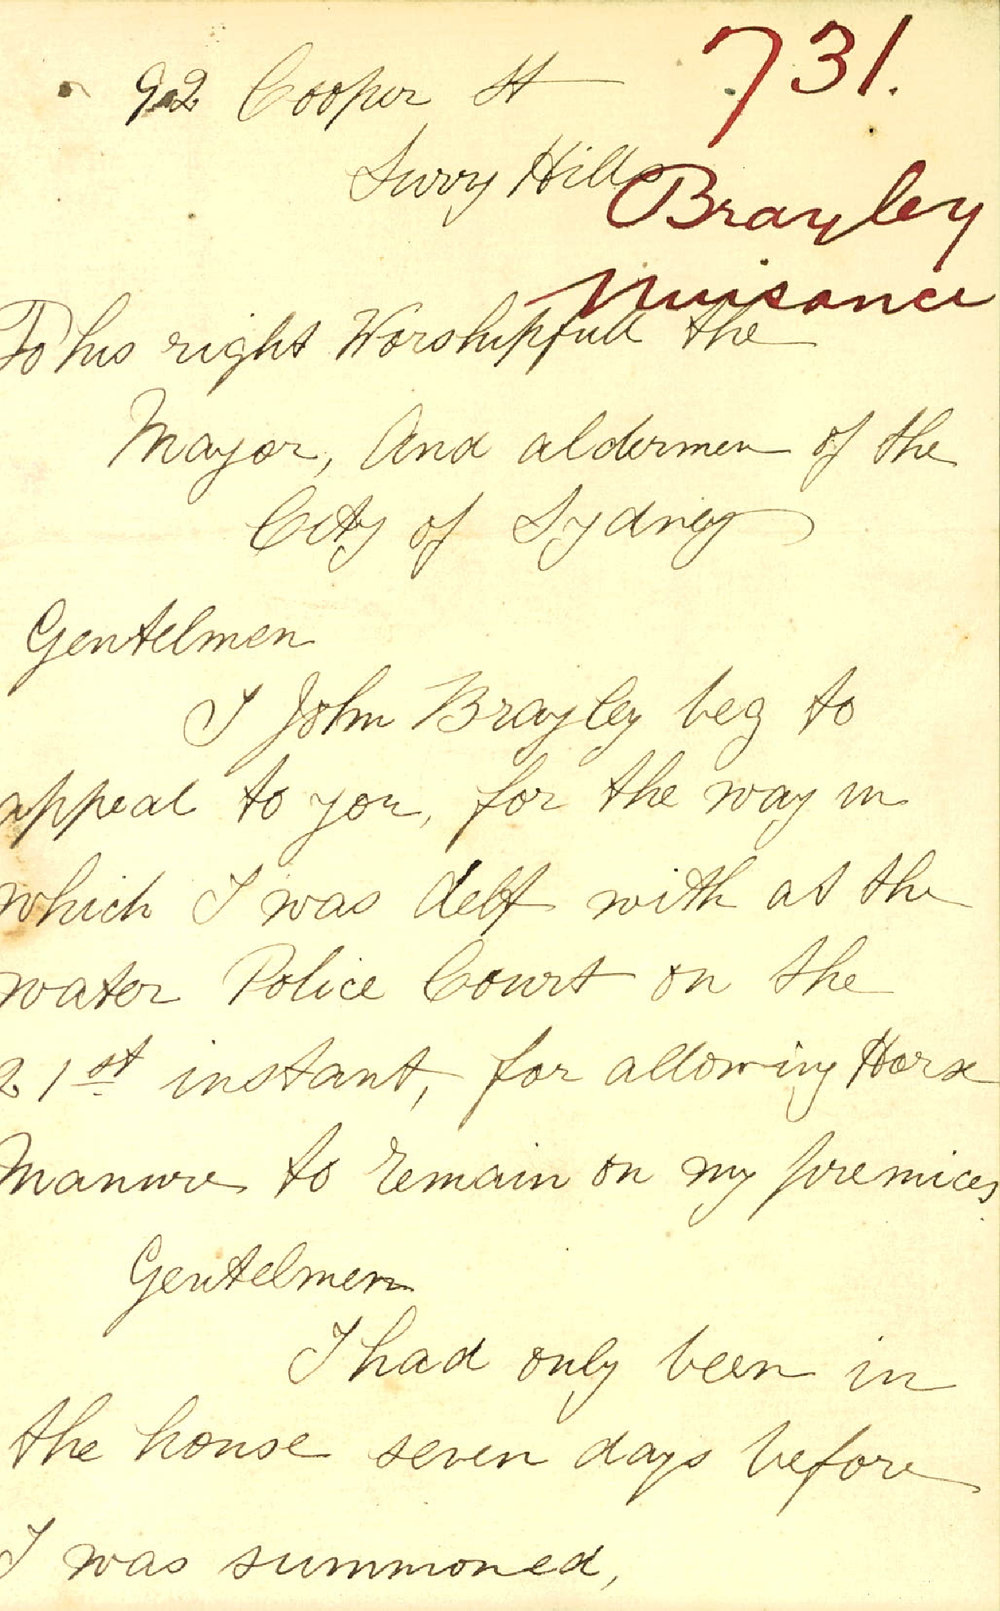 731.
92 Cooper St
Surry Hills
Brayley
Nuisance
To his right Worshipfull the
Mayor, And aldermen of the
City of Sydney
Gentelmen
I John Brayley beg to
appeal to you, for the way in
which I was delt with at the
water Police Court on the
21st instant, for allowing Horse
Manure to remain on my premices
Gentelmen
I had only been in
the house seven days before
I was summoned,